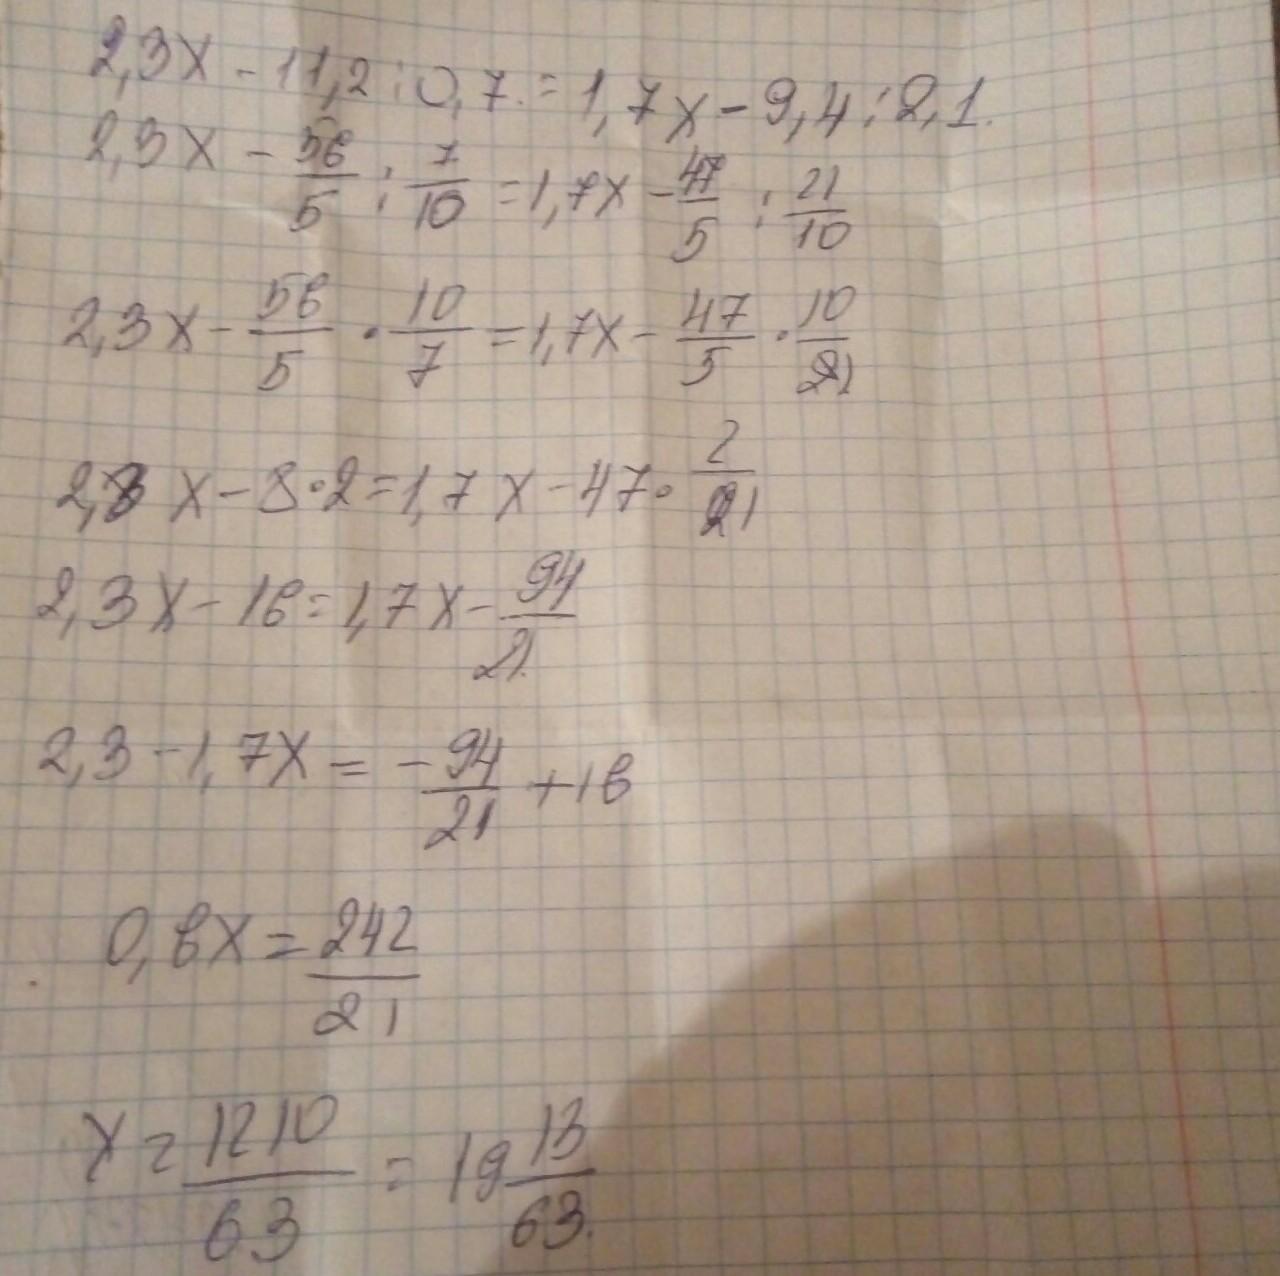 2,3x - 11,2 : 0,7 = 1,7x - 9,4 : 2,1.
2,3x - 56/5 : 7/10 = 1,7x - 47/5 : 21/10
2,3x - 56/5 · 10/7 = 1,7x - 47/5 · 10/21
2,3x - 8 · 2 = 1,7x - 47 · 2/21
2,3x - 16 = 1,7x - 94/21.
2,3 - 1,7x = - 94/21 + 16
0,6x = 242/21
x = 1210/63 = 19 13/63.